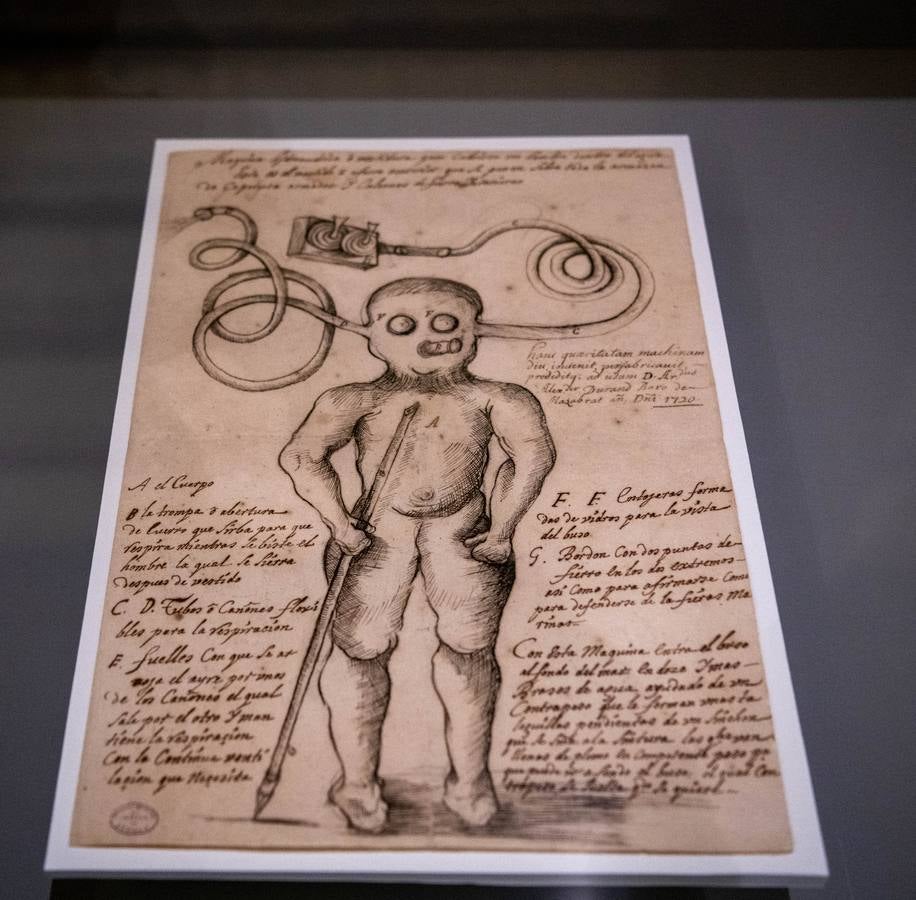 Maquina
hanc quæsitatam machinam
diu invenit, perfabricavit
prodiditq; ad usum D. 
Alexder Durand Baro de
añ. Dñi 1720
F F
A
B
C
A el Cuerpo
B la trompa o abertura
de Cuerro que sirba para que
respira mientras se biste el
hombre la qual se sierra
despues de vestido
C. D. Tubos o Cañones flexi
bles para la respiracion
E. fuelles Con que se ar
roja el ayre por unos
de los Cañones el qual
sale por el otro Y man
tiene la respiracion
Con la Continua venti
lacion que Necesita
F. F Entojeras forma
das de vidros para la vista
del buso
G. Bordon Con dos puntas de
fierro en los dos extremos
asi Como para afirmarse Como
para defenderse de las fieras Ma
rinas
Con Esta Maquina Entra el buso
al fondo del mar: en doza Y mas
Brasos de agua, ayudado de un
Contrapeso que le forman unas ta
leguillas pendientes de un Sinchon
que se Siñe a la Sintura
llenas de plomo en Competente peso pa
que pueda ir a fondo el buso, el qual Con
trapeso se suelta qdo Se quiere